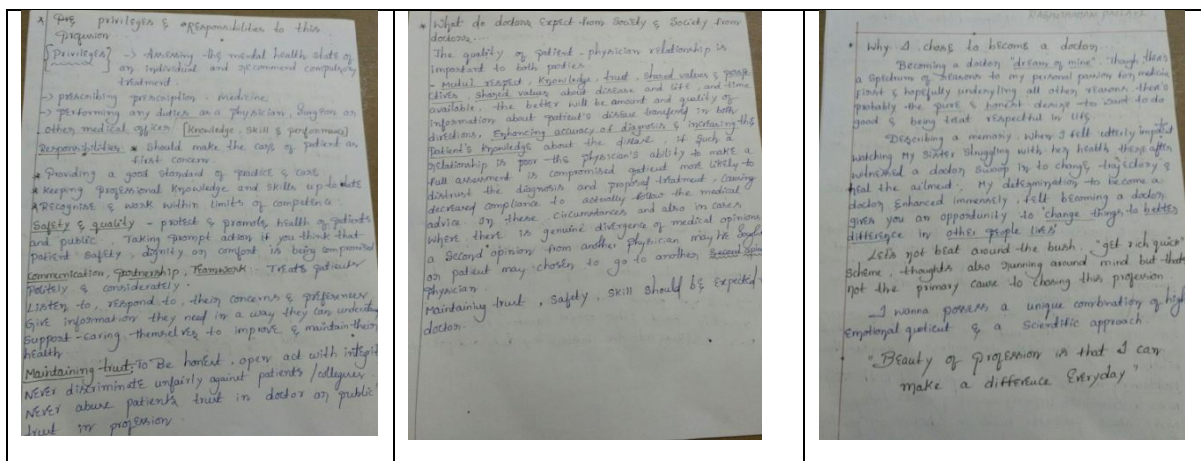 * privileges & *Responsibilities to this
Profession
[Privileges] -> Assessing the mental health state of
an individual and recommend compulsory
treatment.
-> prescribing prescription medicine
-> performing any duties as a physician, Surgeon or
other medical officer [Knowledge, skill & performance]
Responsibilities * Should make the care of patient as
first concern.
* Providing a good standard of practice & care
* Keeping professional knowledge and skills up-to date
* Recognise & work within limits of competence
Safety & quality - protect & promote health of patients
and public. Taking prompt action if you think that
patient safety, dignity or comfort is being compromised
Communication, partnership, Teamwork. Treats patients
politely & considerately.
Listen to, respond to, their concerns & preferences
Give information they need in a way they can understand
Support - caring themselves to improve & maintain their
health
Maintaining trust: To Be honest, open act with
Never discriminate unfairly against patients /
Never abuse patients trust in doctor or public
trust in profession
* What do doctors expect from Society & Society from
doctors...
The quality of patient - physician relationship is
important to both parties.
- respect, Knowledge, trust, shared values &
shared values about disease and life, and time
available, the better will be amount and quality of
information about patient's disease transferred in both
directions, Enhancing accuracy of diagnosis & increasing the
Patient's Knowledge about the disease. If such a
relationship is poor the physician's ability to make a
full assessment is compromised patient most likely to
distrust the diagnosis and proposed treatment, causing
decreased compliance to actually follow the medical
advice. In these circumstances and also in cases
where there is genuine divergence of medical opinions
a second opinion from another physician may be
or patient may chosen to go to another
physician.
Maintaining trust, Safety, skill should be expected
doctor.
* Why I chose to become a doctor...
Becoming a doctor "dream of mine". Though there
a spectrum of reasons to my personal passion for
first & hopefully underlying all other reasons there's
probably the pure & honest desire to want to do
good & being that respectful in life.
Describing a memory, when I felt utterly
watching My Sister struggling with her health there after
witnessed a doctor swoop in to change trajectory &
heal the ailment. My determination to become a
doctor Enhanced immensely, felt becoming a doctor
gives you an opportunity to 'change things to better
difference in other people lives'
Let's not beat around the bush, "get rich quick"
Scheme, thoughts also running around mind but thats
not the primary cause to chosing this profession.
- I wanna possess a unique combination of high
Emotional quotient & a Scientific approach.
"Beauty of profession is that I can
make a difference Everyday"